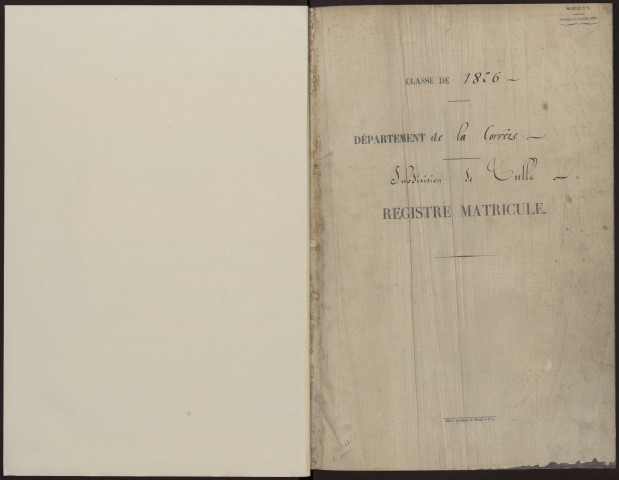 MODÈLE N° 
CLASSE DE 1876
DÉPARTEMENT de la Corrèze
Subdivision de Tulle
REGISTRE MATRICULE.